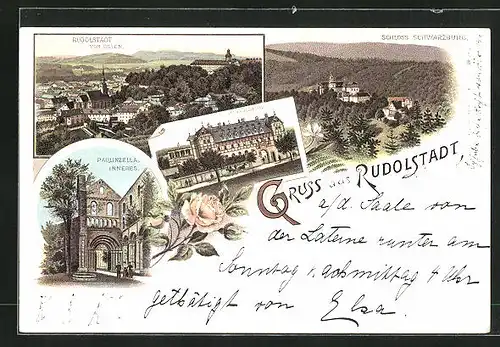 RUDOLSTADT
VON OSTEN.
SCHLOSS SCHWARZBURG.
PAULINZELLA
INNERES.
GRUSS aus RUDOLSTADT,
a/d. Saale von
der Laterne runter am
Sonntag Nachmittag 4 Uhr
getbätigt von Elsa.